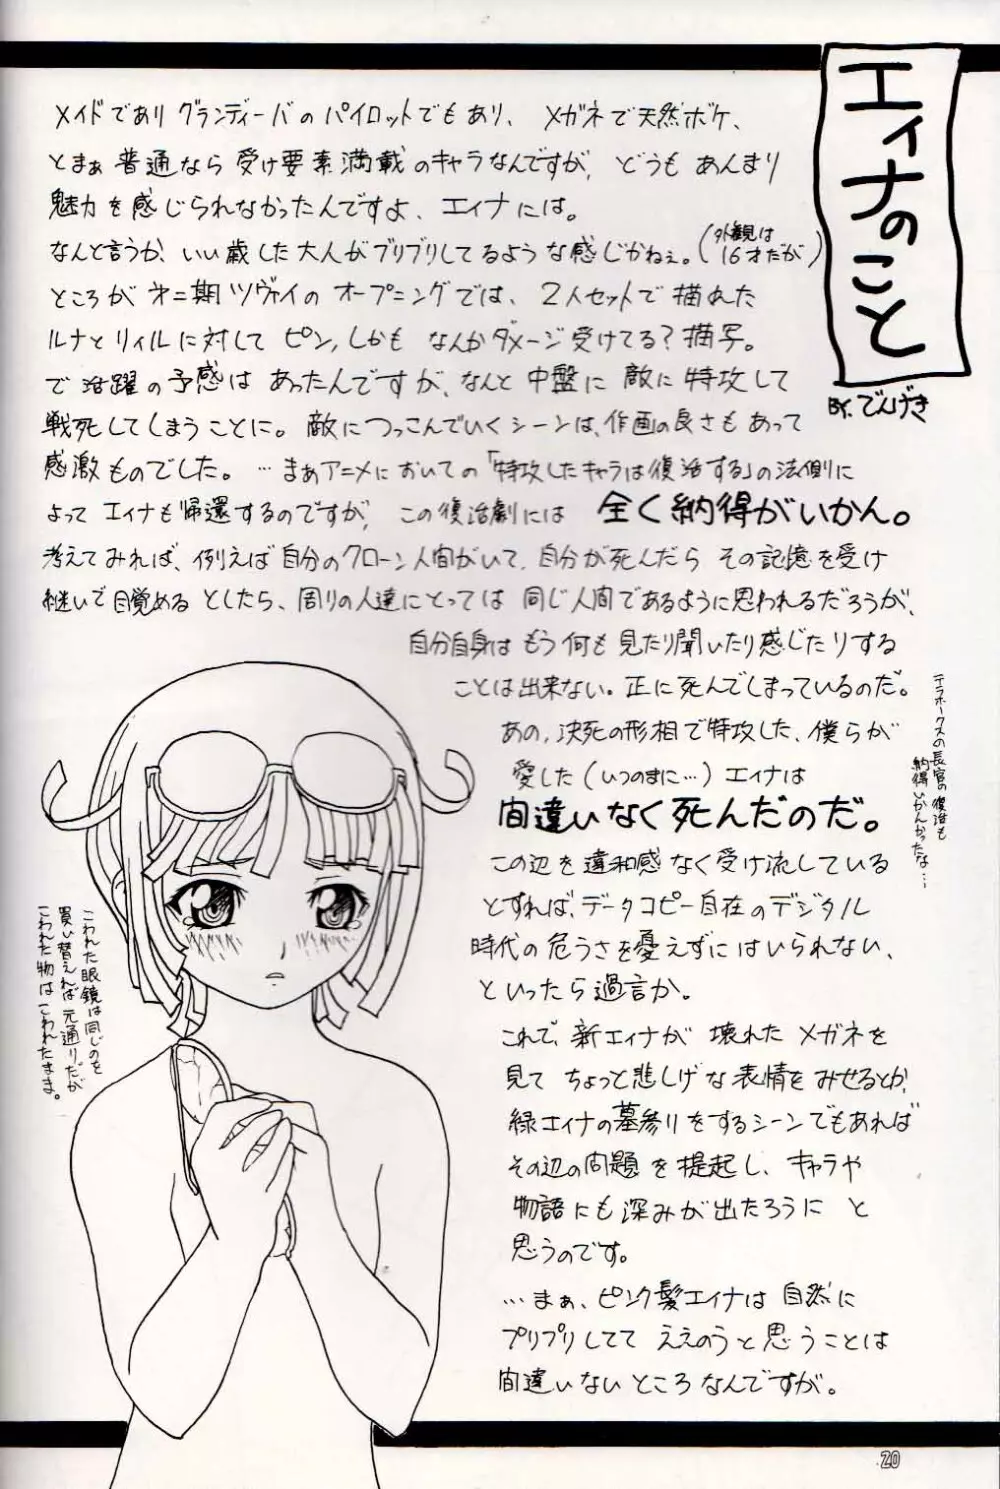 エィナのこと
BY.でんげき
メイドであり グランディーバの パイロットでもあり、 メガネで天然ボケ、
とまぁ 普通なら 受け要素満載のキャラなんですが、 どうも あんまり
魅力を感じられなかったんですよ、エィナには。
なんと言うか、いい歳した大人がブリブリしてるような感じかねぇ。(外観は16才だが)
ところが 第二期ツヴァイの オープニングでは、2人セットで 描れた
ルナとリィルに対して ピン、しかも なんかダメージ受けてる?描写。
で 活躍の予感は あったんですが、なんと 中盤に 敵に特攻して
戦死してしまうことに。敵につっこんでいくシーンは、作画の良さもあって
感激ものでした。…まぁアニメにおいての「特攻したキャラは復活する」の法則に
よって エィナも帰還するのですが、この復活劇には 全く納得がいかん。
考えてみれば、例えば自分のクローン人間がいて、自分が死んだら その記憶を受け
継いで目覚める としたら、周りの人達にとっては 同じ人間であるように思われるだろうが、
自分自身は もう何も 見たり聞いたり感じたりする
ことは出来ない。正に死んでしまっているのだ。
あの、決死の形相で特攻した、僕らが
愛した(いつのまに…)エィナは
間違いなく死んだのだ。
この辺を違和感なく受け流している
とすれば、データコピー自在のデジタル
時代の危うさを憂えずにはいられない、
といったら過言か。
これで、新エィナが 壊れた メガネを
見て ちょっと悲しげな表情をみせるとか、
緑エィナの墓参りをするシーンでもあれば
その辺の問題を提起し、キャラや
物語にも深みが出たろうに と
思うのです。
…まぁ、ピンク髪エィナは 自然に
プリプリしてて ええのうと思うことは
間違いないところなんですが。
テラホークスの長官の復活も
納得いかんかったな…
こわれた眼鏡は同じのを
買い替えれば元通り。だが
こわれた物はこわれたまま。
20